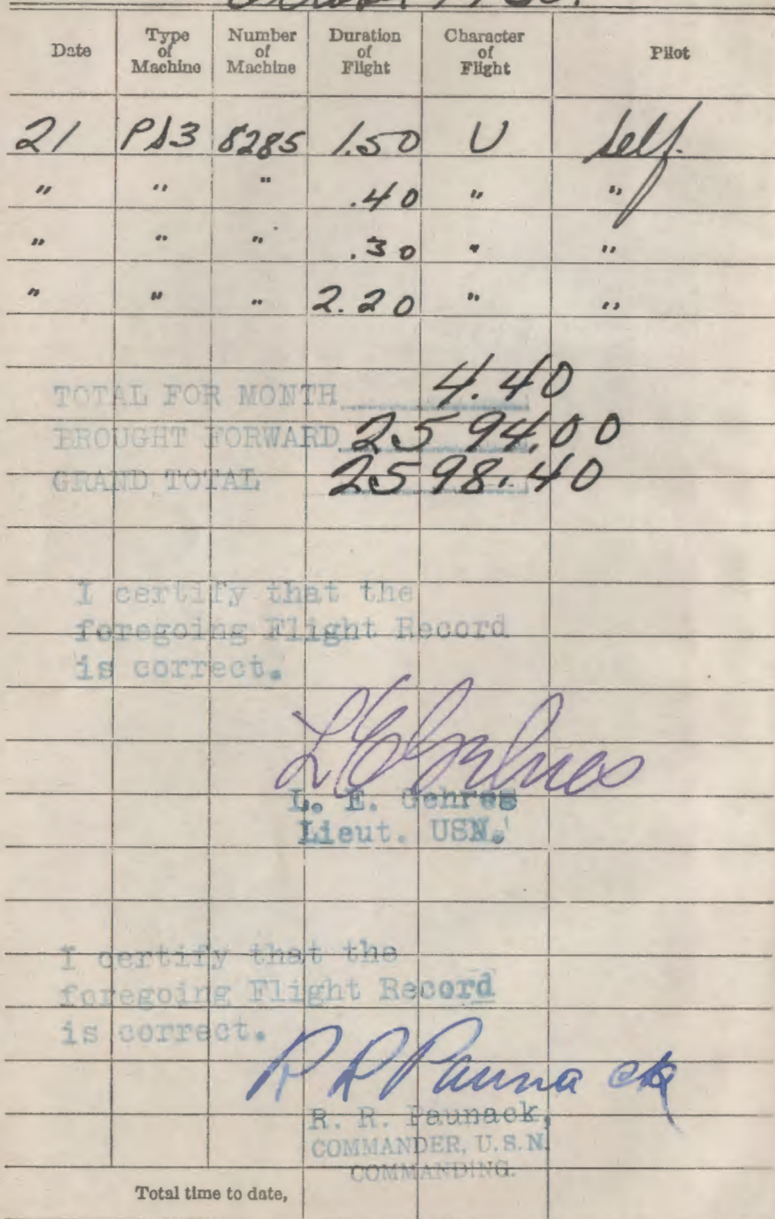 Date Type of Machine Number of Machine Duration of Flight Character of Flight Pilot
21 PS3 8285 1.50 U Self.
" " " .40 " "
" " " .30 " "
" " " 2.20 " "
TOTAL FOR MONTH 4.40
BROUGHT FORWARD 2594.00
GRAND TOTAL 2598.40
I certify that the
foregoing Flight Record
is correct.
L E Gehres
L. E. Gehres
Lieut. USN.
I certify that the
foregoing Flight Record
is correct.
R R Paunack
R. R. Paunack,
COMMANDER, U.S.N.
COMMANDING.
Total time to date,